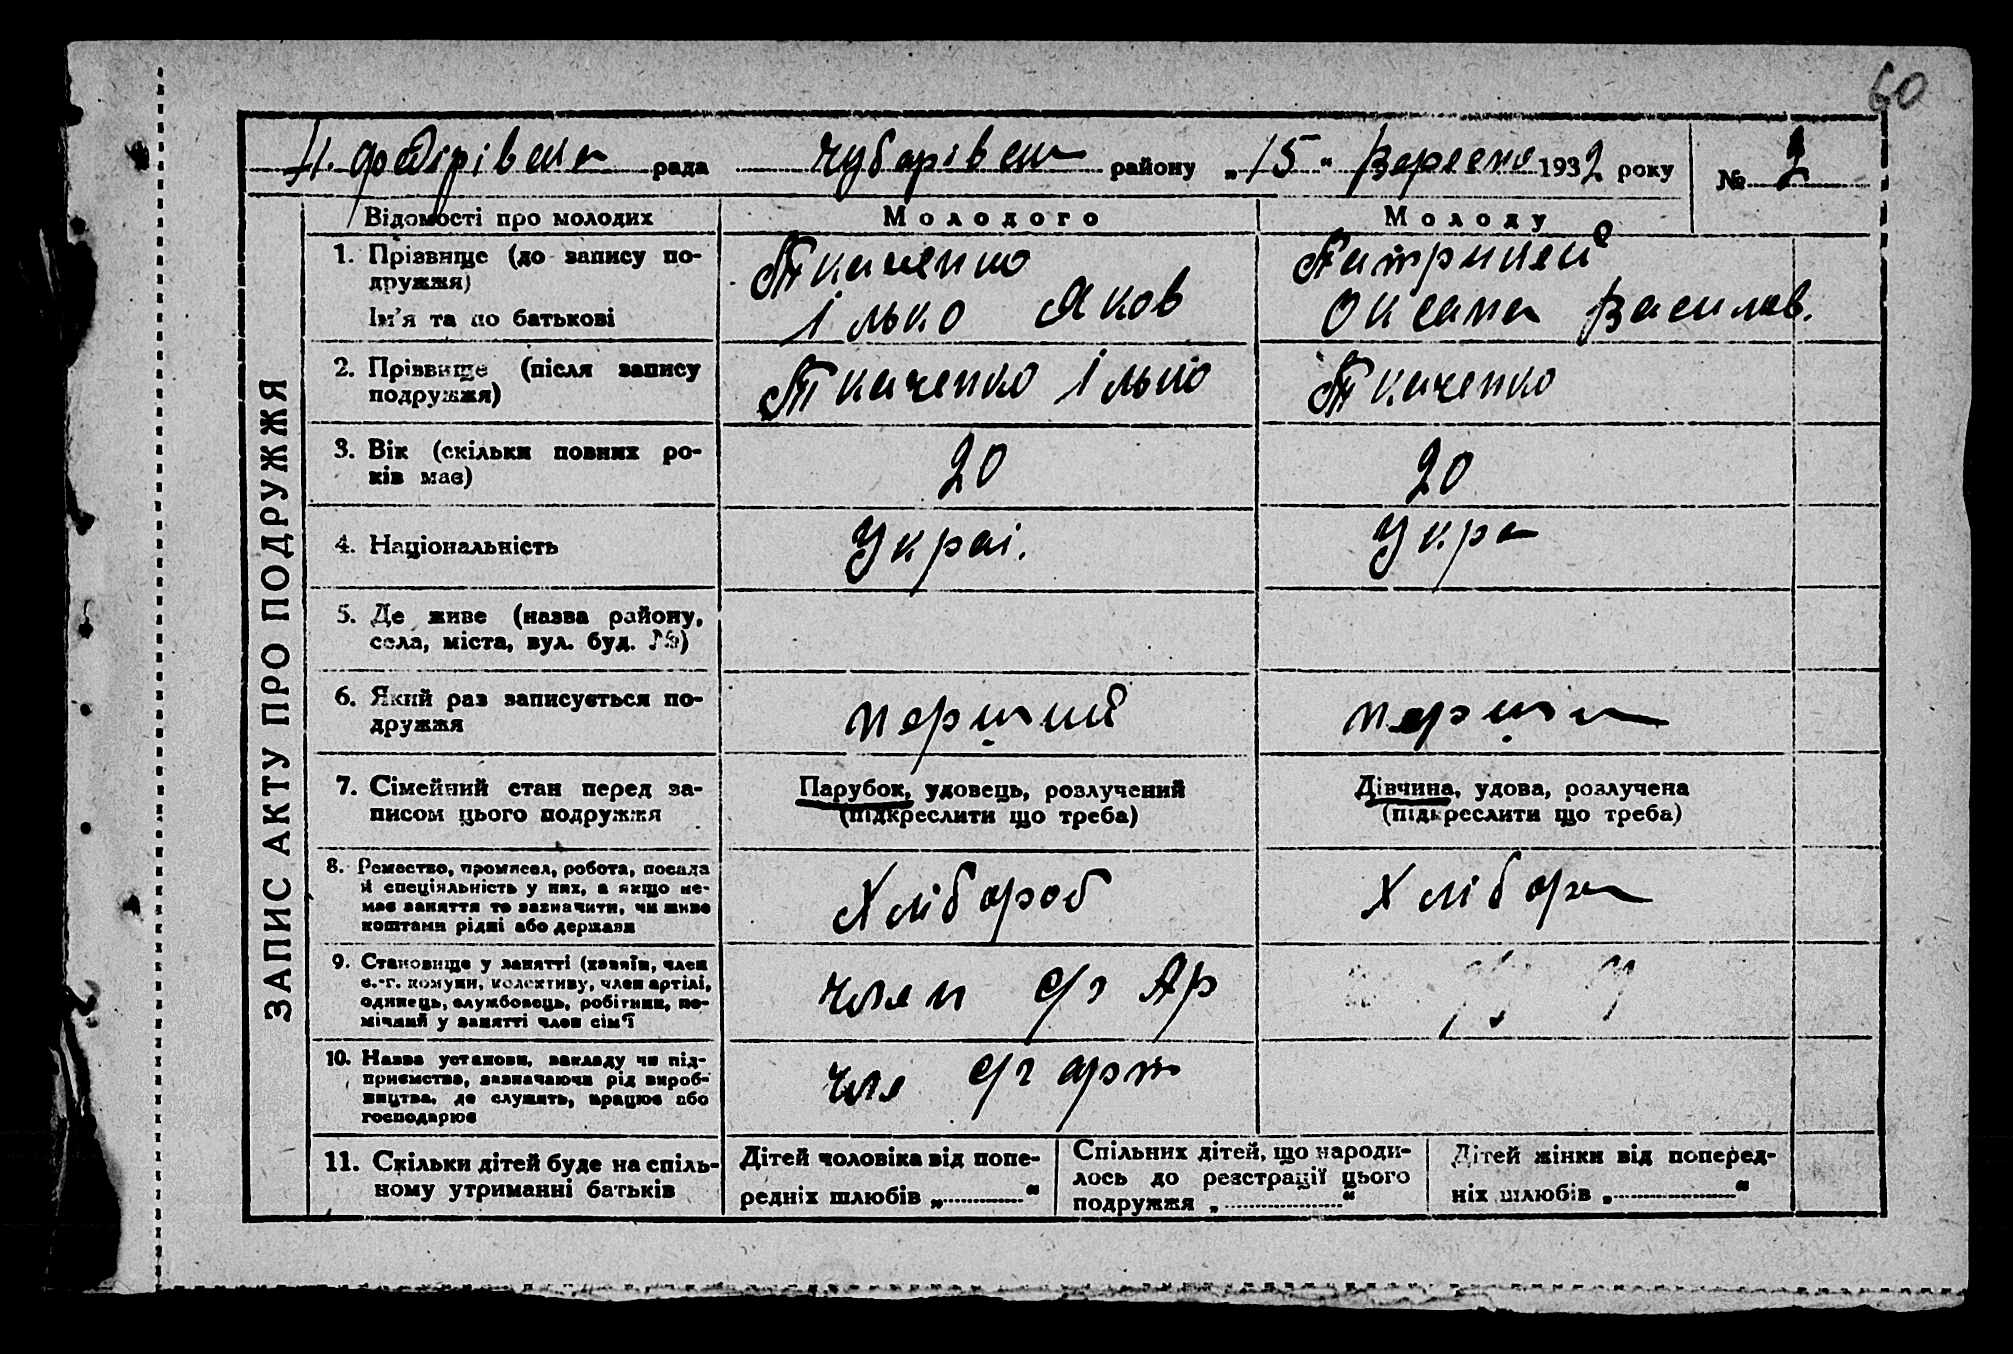 60
Н. Федорівська рада Чубарівськ району „15“ Вересня 1932 року № 2
ЗАПИС АКТУ ПРО ПОДРУЖЖЯ
Відомості про молодих Молодого Молоду
1. Прізвище (до запису по-
дружжя)
Ім'я та по батькові
Ткаченко
Ілько Яков
Оксана Василів.
2. Прізвище (після запису
подружжя)
Ткаченко Ілько
Ткаченко
3. Вік (скільки повних ро-
ків має)
20
20
4. Національність
Украі.
Укра
5. Де живе (назва району,
села, міста, вул. буд. №)
6. Який раз записується по-
дружжя
перший
перши
7. Сімейний стан перед за-
писом цього подружжя
Парубок, удовець, розлучений
(підкреслити що треба)
Дівчина, удова, розлучена
(підкреслити що треба)
8. Ремество, промисел, робота, посада
й спеціяльність у них, а якщо не-
має заняття то зазначити, чи живе
коштами рідні або держави
Хлібороб
Хлібора
9. Становище у занятті (хазяїн, член
с.-г. комуни, колективу, член артілі,
одинець, службовець, робітник, по-
мічний у занятті член сім'ї
член с/г Ар
10. Назва установи, закладу чи під-
приємства, зазначаючи рід вироб-
ництва, де служить, працює або
господарює
чле с/г арт
11. Скільки дітей буде на спіль-
ному утриманні батьків
Дітей чоловіка від попе-
редніх шлюбів „..........“
Спільних дітей, що народи-
лось до реєстрації цього
подружжя „..........“
Дітей жінки від поперед-
ніх шлюбів „..........“